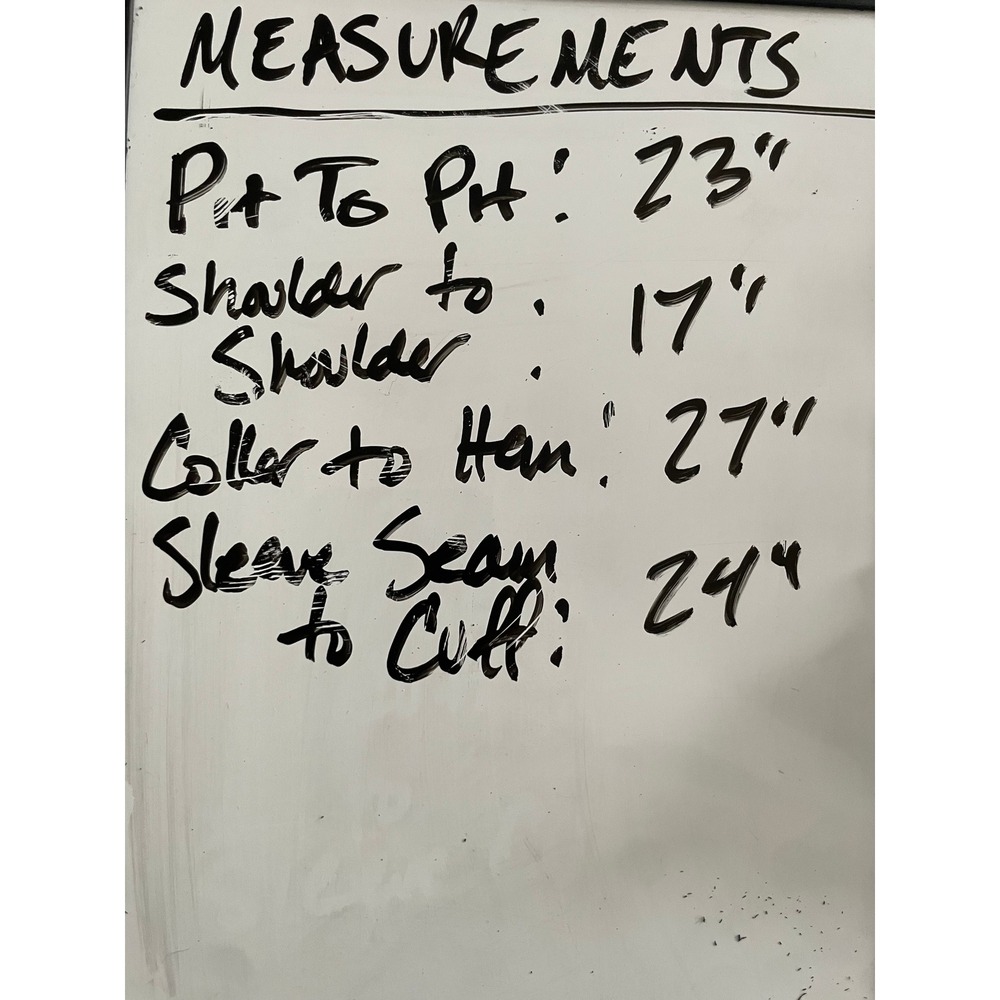 MEASUREMENTS
Pit To Pit: 23"
Shoulder to
Shoulder : 17"
Coller to Hem: 27"
Sleeve Seam
to Cuff: 24"